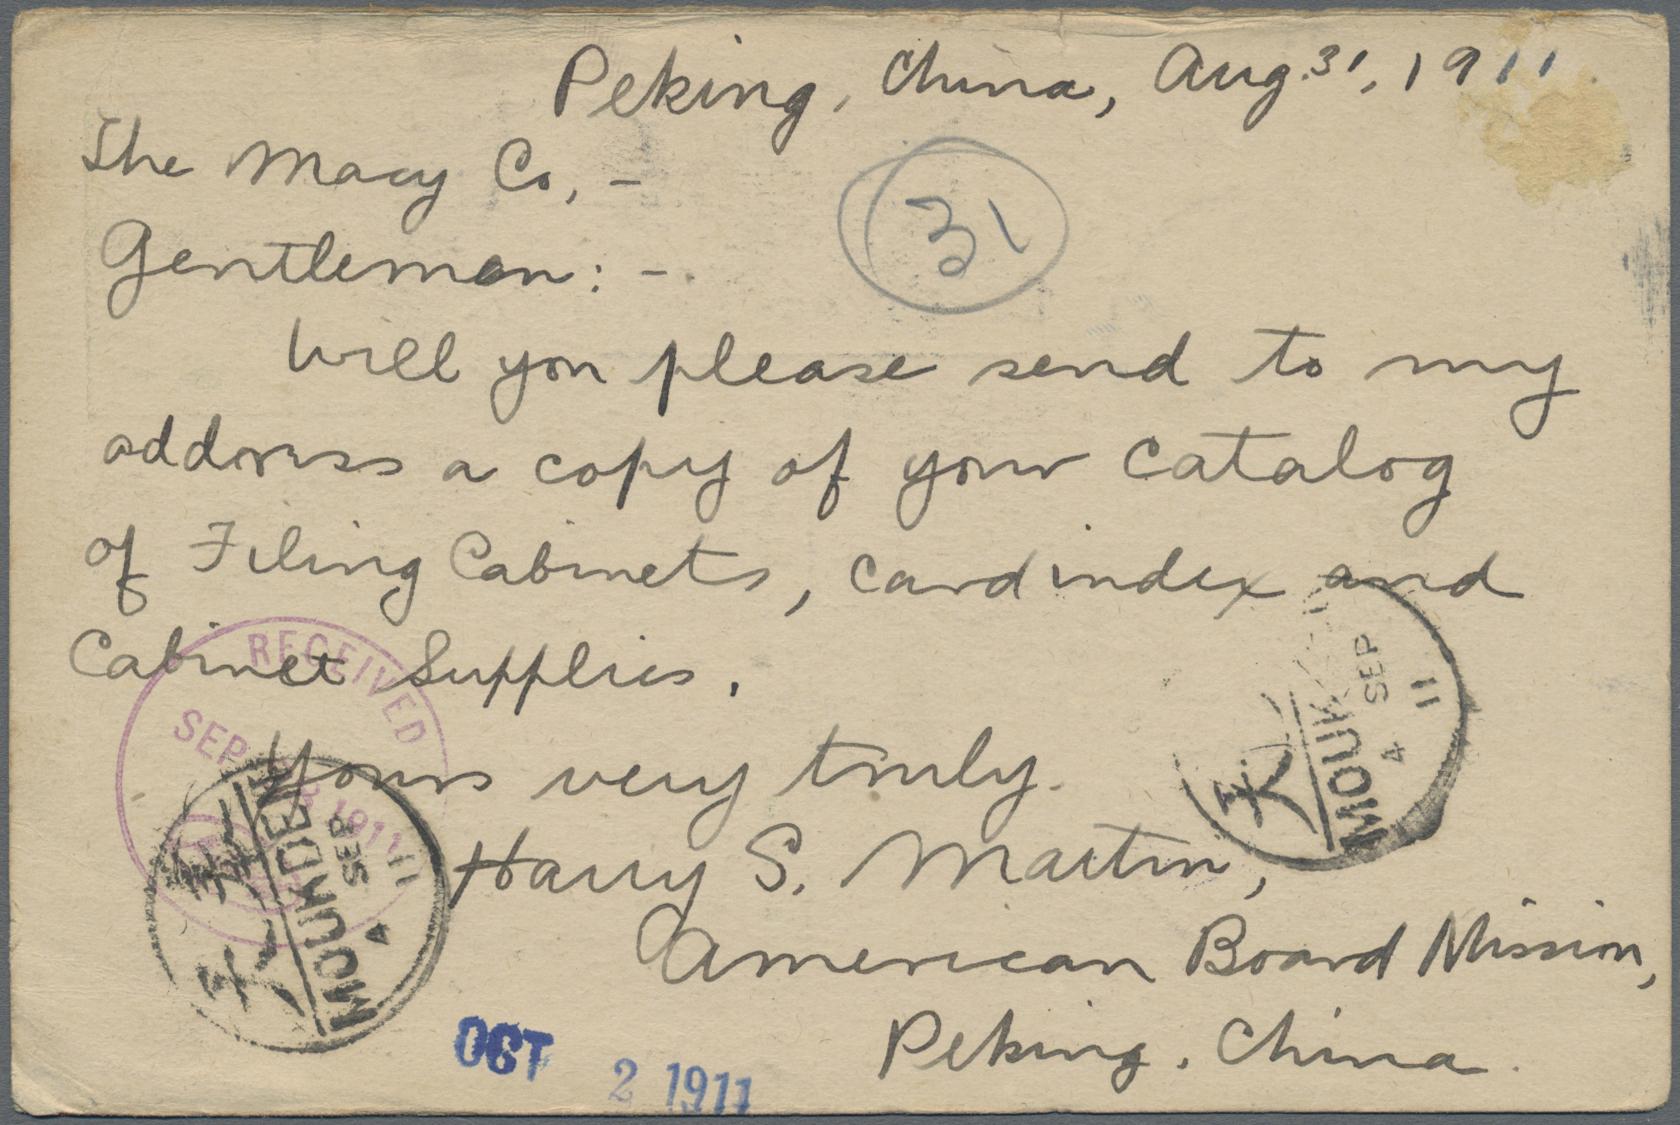 Peking, China, Aug. 31, 1911
The Macy Co, -
Gentlemen: -
31
Will you please send to my
address a copy of your catalog
of Filing Cabinets, card index and
Cabinet Supplies.
Yours very truly.
Harry S. Martin,
American Board Mission,
Peking, China.
RECEIVED
SEP 1911
MOUKDEN
4
SEP
11
MOUK
4
SEP
11
OCT 2 1911